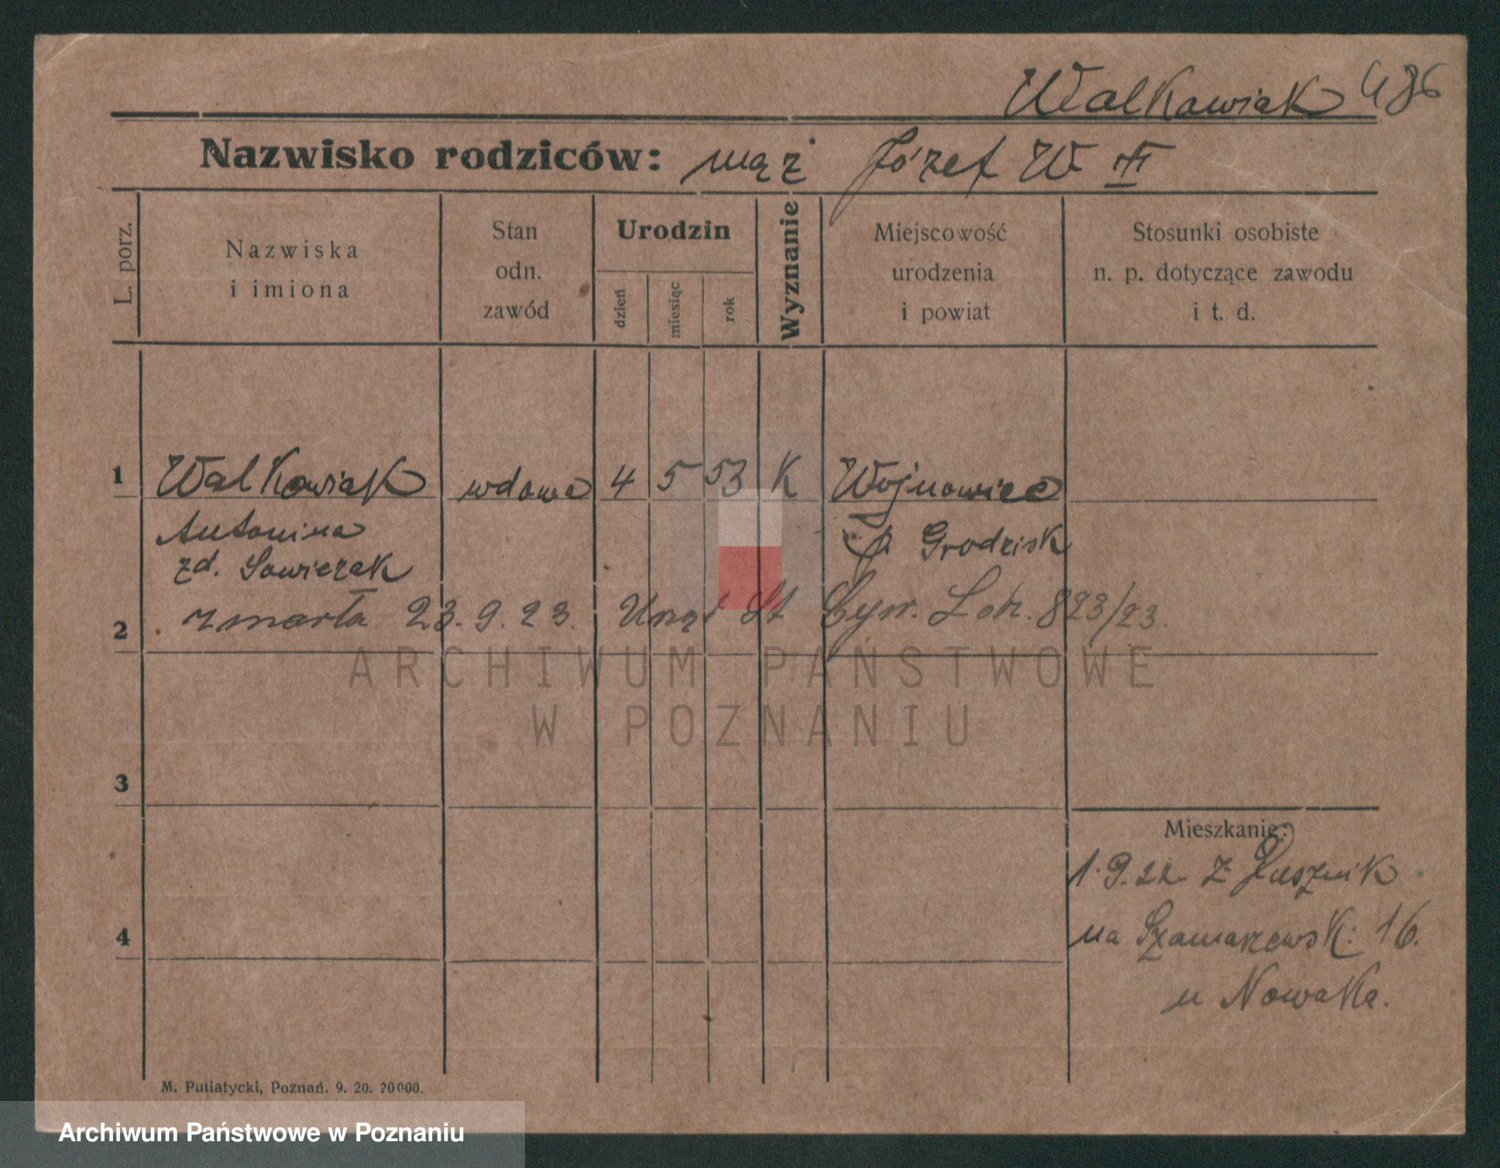 Walkowiak 486
Nazwisko rodziców: mąż Józef W
L. porz.
Nazwiska
i imiona
Stan
odn.
zawód
Urodzin
dzień
miesiąc
rok
Wyznanie
Miejscowość
urodzenia
i powiat
Stosunki osobiste
n. p. dotyczące zawodu
i t. d.
1 Walkowiak wdowa 4 5 53 K Wojnowice
Antonina p Grodzisk
zd. Sowiezak
2 zmarła 23. 9. 23. Urząd St Cyw. 823/23.
ARCHIWUM PAŃSTWOWE
W POZNANIU
3
Mieszkanie:
1.9.22 z Dusznik
4 na Szamarzewsk: 16.
u Nowaka.
M. Putiatycki, Poznań. 9. 20. 20000.
Archiwum Państwowe w Poznaniu